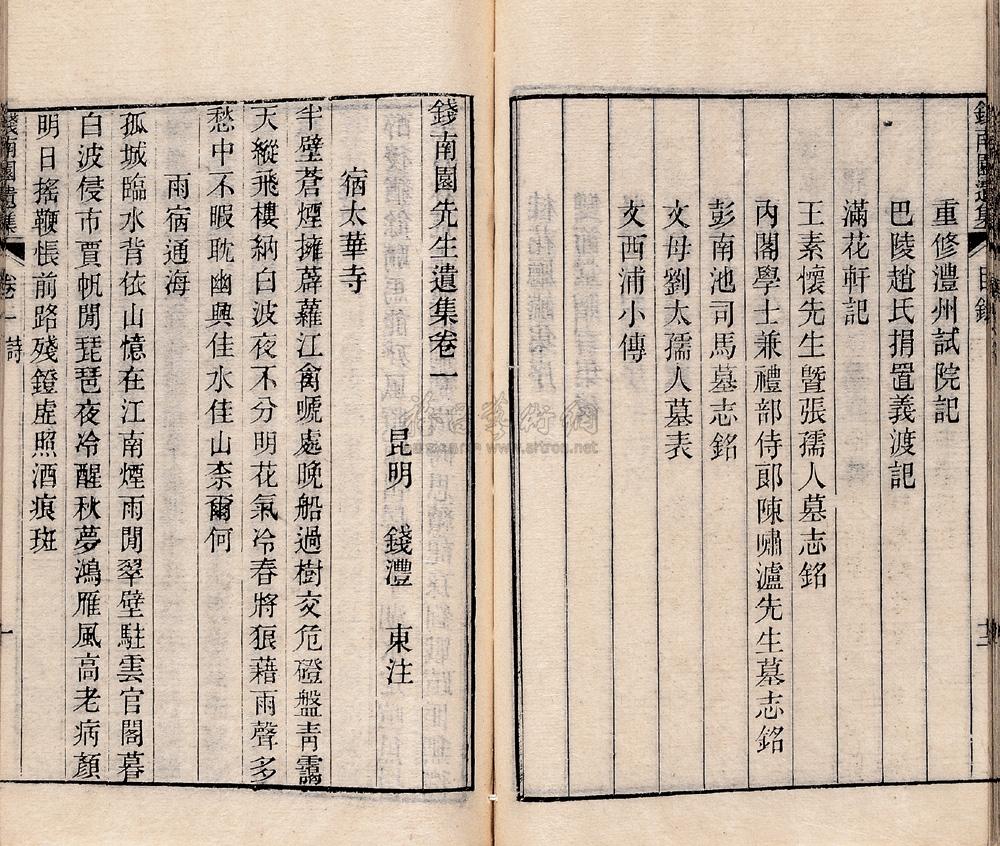 錢南園遺集 目錄
重修澧州試院記
巴陵趙氏捐置義渡記
滿花軒記
王素懷先生暨張孺人墓志銘
內閣學士兼禮部侍郎陳嘯瀘先生墓志銘
彭南池司馬墓志銘
文母劉太孺人墓表
文西浦小傳
錢南園先生遺集卷一
昆明 錢灃 東注
宿太華寺
半壁蒼煙擁薜蘿江禽嗁處晚船過樹交危磴盤靑靄
天縱飛樓納白波夜不分明花氣冷春將狼藉雨聲多
愁中不暇耽幽興佳水佳山柰爾何
雨宿通海
孤城臨水背依山憶在江南煙雨閒翠壁駐雲官閣暮
白波侵市賈帆閒琵琶夜冷醒秋夢鴻雁風高老病顏
明日搖鞭悵前路殘鐙虛照酒痕斑
錢南園遺集 卷一 詩
一